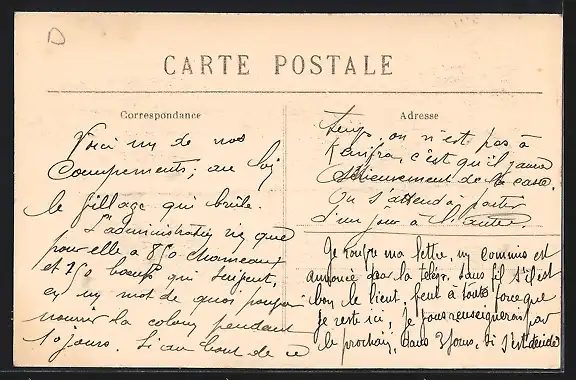 D
CARTE POSTALE
Correspondance
Adresse
Voici un de nos
Campements, au loin
le village qui brûle.
L'administration ne que
pour elle a 850 chameaux
et 250 bœufs qui suivent,
en un mot de quoi pouvoir
nourrir la colonne pendant
10 jours. Si au bout de ce
temps, on n'est pas à
Kenifra, c'est qu'il y aura
sérieusement de la casse.
On s'attend à partir
d'un jour à l'autre.
Je rouvre ma lettre, un convoi est
annoncé par la télég. sans fil s'il est
bon le tient, peut à toute force que
je reste ici, je vous renseignerai par
le prochain, dans 3 jours, si s'est décidé